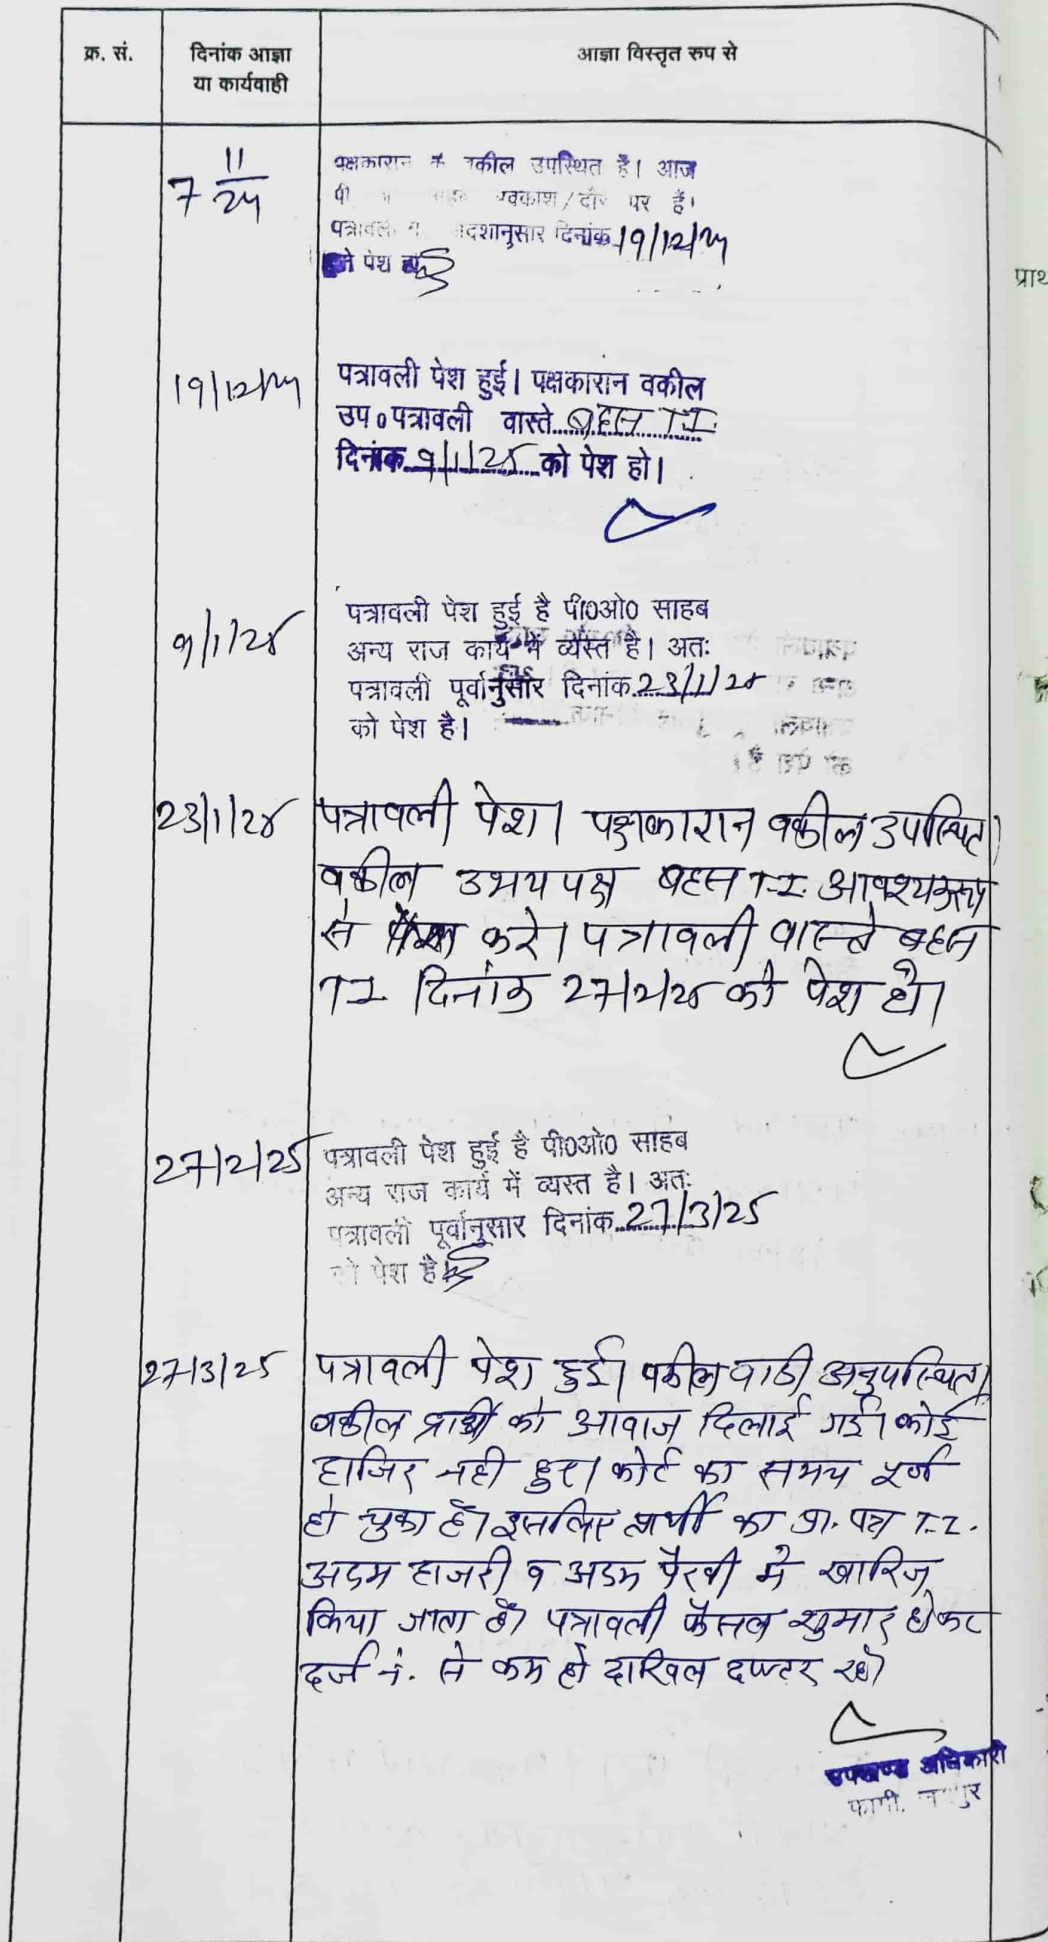 क्र. सं.
दिनांक आज्ञा
या कार्यवाही
आज्ञा विस्तृत रुप से
7 11/24
पक्षकारान के वकील उपस्थित है। आज
पी अवकाश/दौरे पर है।
पत्रावली दिनांक 19/12/24
पेश हो
19/12/24
पत्रावली पेश हुई। पक्षकारान वकील
उप० पत्रावली वास्ते बहस T.I.
दिनांक 9/1/25 को पेश हो।
9/1/25
पत्रावली पेश हुई है पी०ओ० साहब
अन्य राज कार्य में व्यस्त है। अतः
पत्रावली पूर्वानुसार दिनांक 23/1/25
को पेश है।
23/1/25
पत्रावली पेश। पक्षकारान वकील उपस्थित।
वकील उभयपक्ष बहस T.I. आवश्यक रूप
से करे। पत्रावली वास्ते बहस
T.I. दिनांक 27/2/25 को पेश हो।
27/2/25
पत्रावली पेश हुई है पी०ओ० साहब
अन्य राज कार्य में व्यस्त है। अतः
पत्रावली पूर्वानुसार दिनांक 27/3/25
को पेश है।
27/3/25
पत्रावली पेश हुई। वकील वादी अनुपस्थित।
वकील प्रार्थी को आवाज दिलाई गई। कोई
हाजिर नही हुए। कोर्ट का समय पूर्ण
हो चुका है। इसलिए प्रार्थी का प्रा. पत्र T.I.
अदम हाजरी व अदम पैरवी मे खारिज
किया जाता है। पत्रावली फैसल शुमार होकर
दर्ज नं. से कम हो दाखिल दफ्तर रहे।
उपखण्ड अधिकारी
फागी, जयपुर
प्राथ